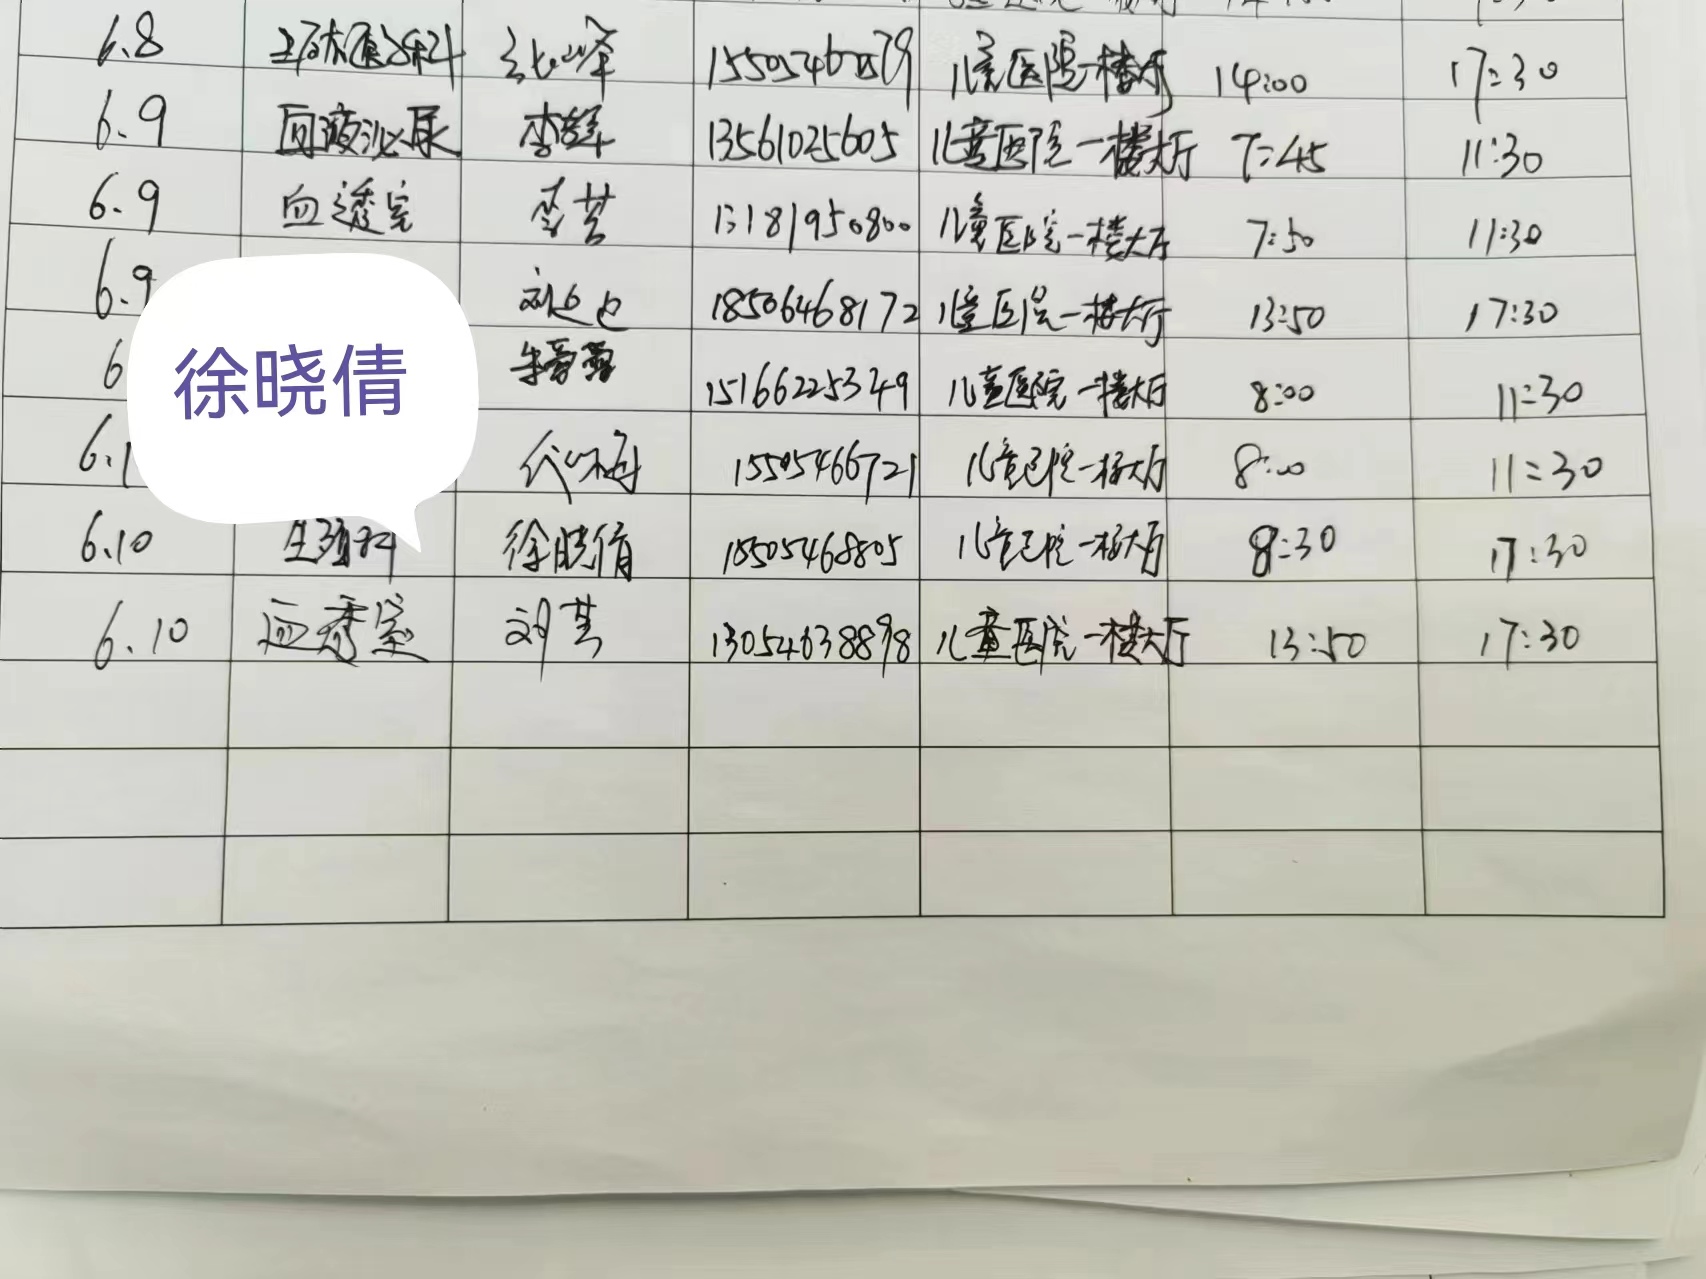 6.8 15505460579 儿童医院一楼大厅 14:00 17:30
6.9 血液泌尿 李辉 13561025605 儿童医院一楼大厅 7:45 11:30
6.9 血透室 李芸 13181950800 儿童医院一楼大厅 7:50 11:30
6.9 18506468172 儿童医院一楼大厅 13:50 17:30
徐晓倩
6 15166225349 儿童医院一楼大厅 8:00 11:30
6.1 代峰 15505466721 儿童医院一楼大厅 8:00 11:30
6.10 生殖科 徐晓倩 15505468805 儿童医院一楼大厅 8:30 17:30
6.10 血透室 刘芸 13054638898 儿童医院一楼大厅 13:50 17:30